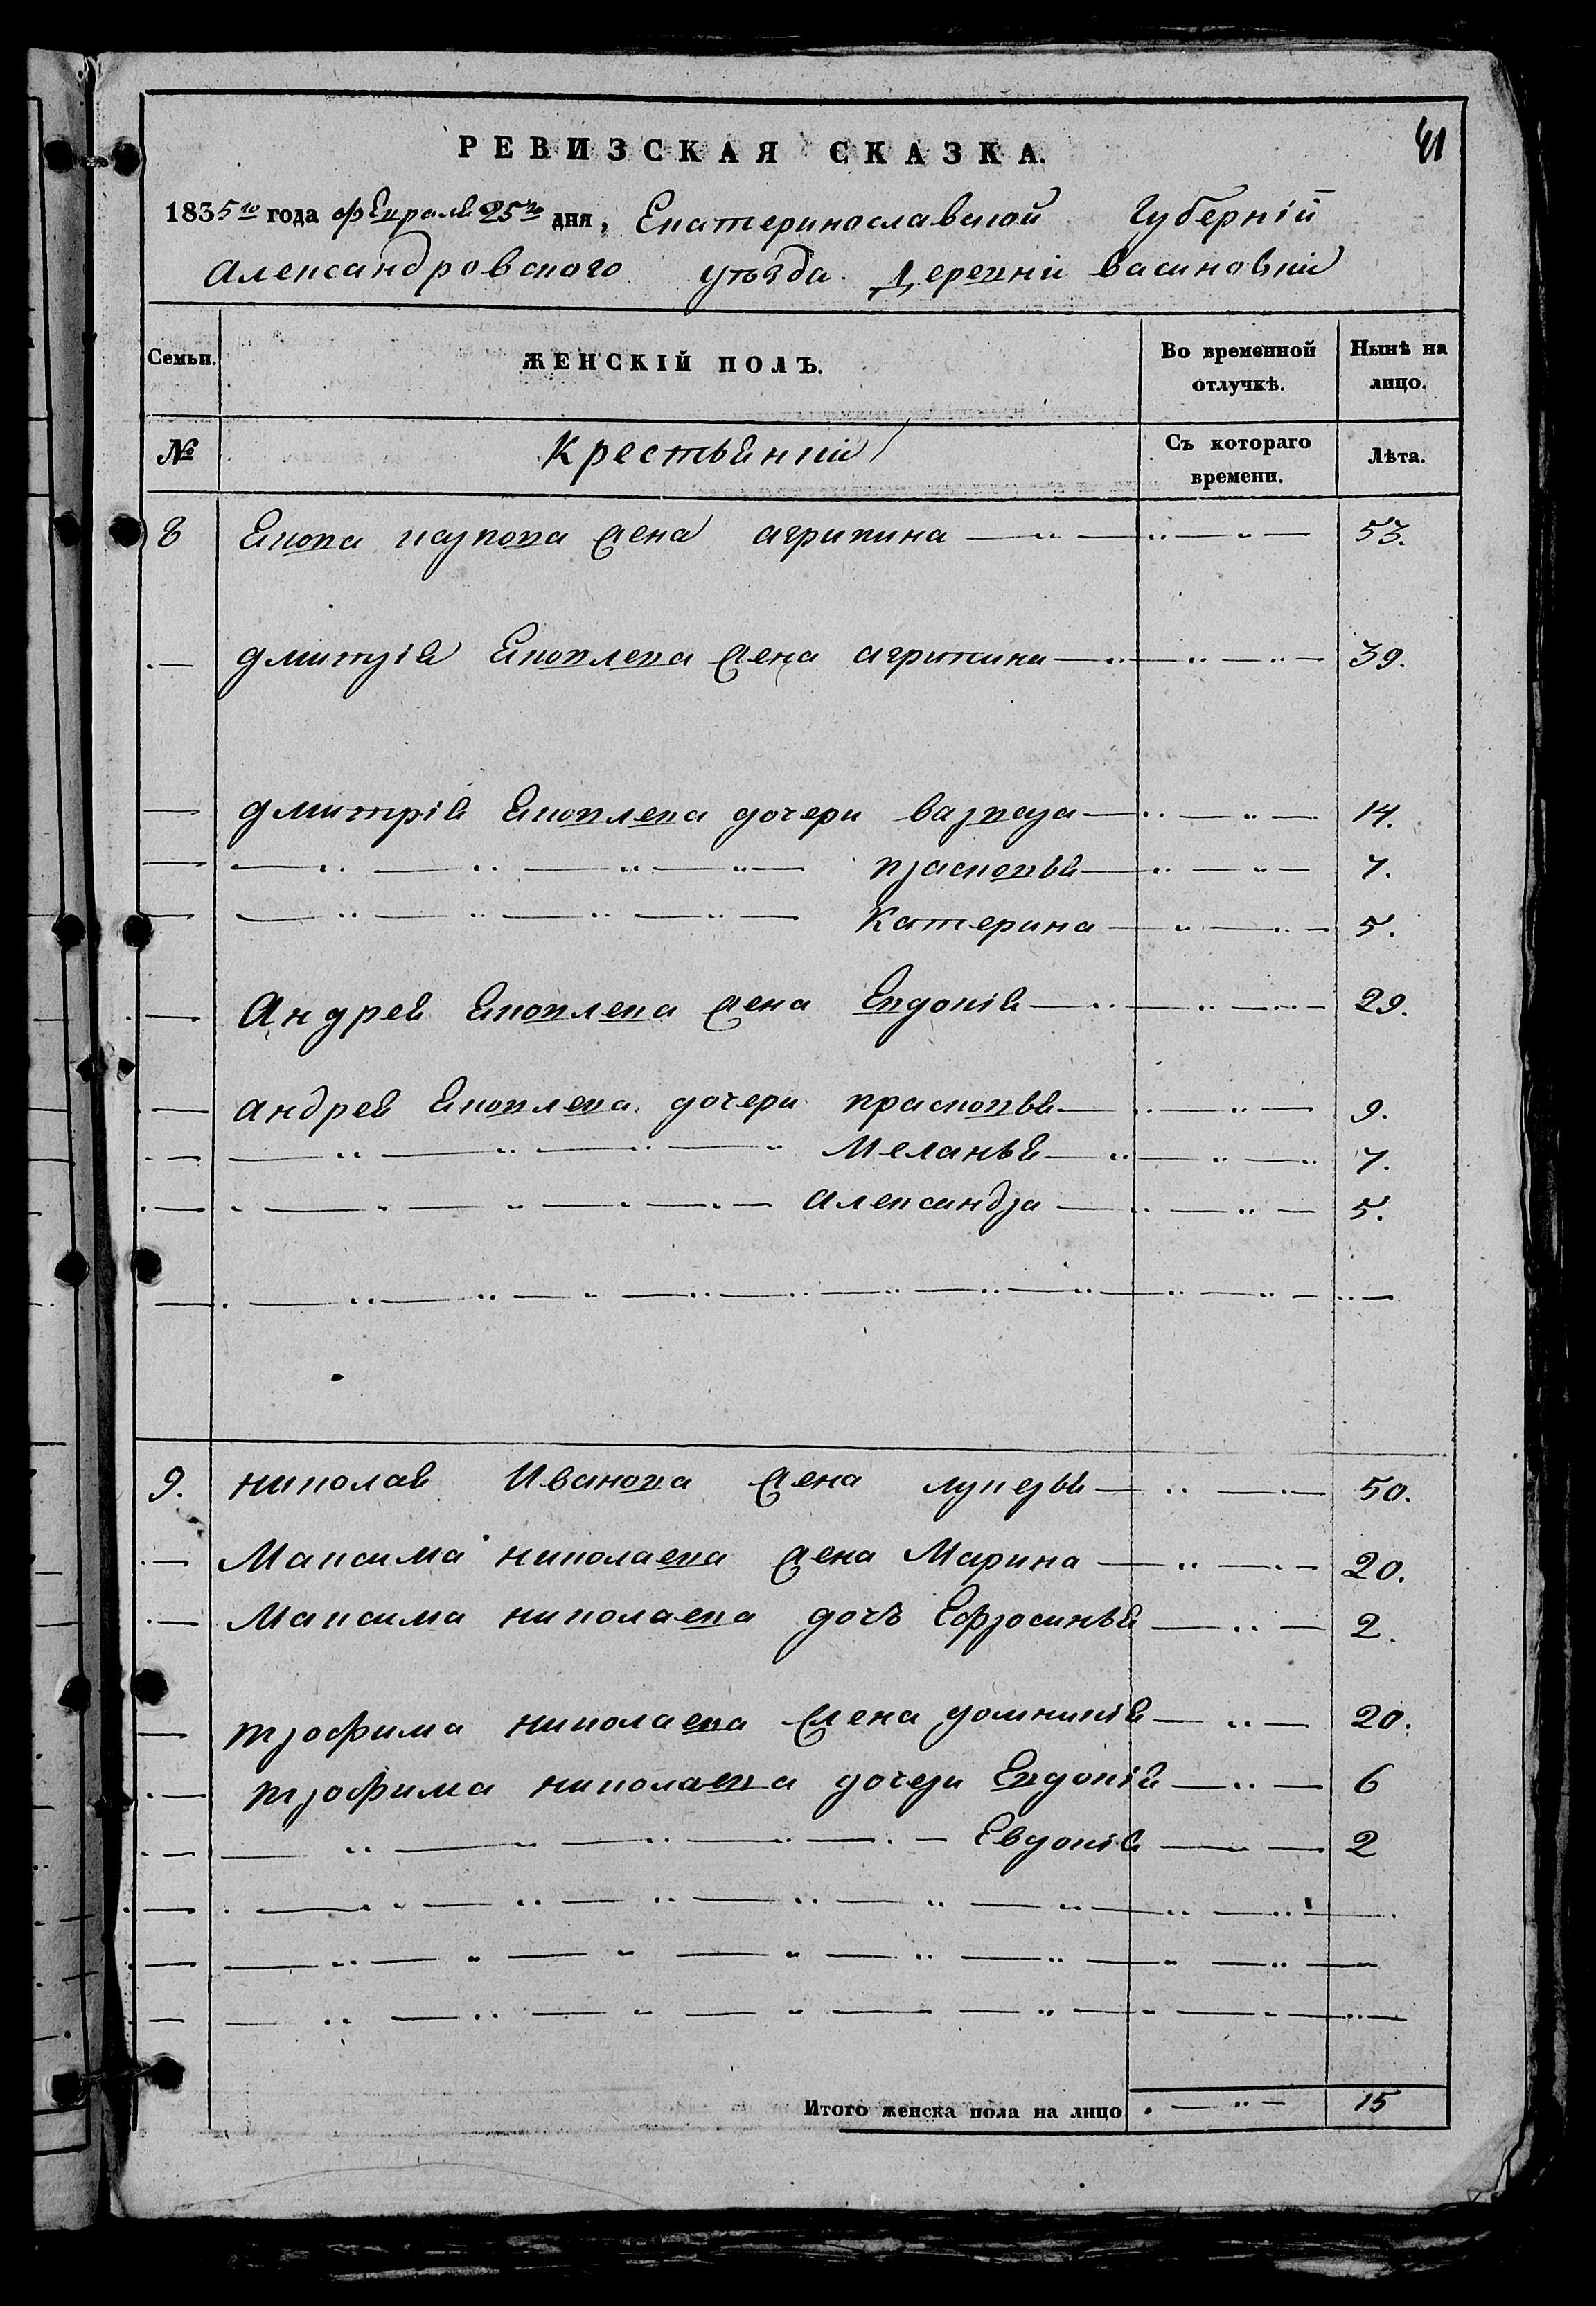 41
РЕВИЗСКАЯ СКАЗКА.
1835го года февраля 25го дня, Екатеринославской Губерніи
Александровского уѣзда деревни Васиновки
Семьи. ЖЕНСКІЙ ПОЛЪ. Во временной отлучкѣ. Нынѣ на лицо.
№ Крестьянки Съ котораго времени. Лѣта.
8 Якова жена агрипина 53.
дмитрія Яковлева жена агрипина 39.
дмитрія Яковлева дочери варвара 14.
прасковья 7.
Катерина 5.
Андрея Яковлева жена Евдокія 29.
андрея Яковлева дочери прасковья 9.
Меланья 7.
александра 5.
9. николая Иванова жена лукерья 50.
Максима николаева жена Марина 20.
Максима николаева дочь Ефросинья 2.
трофима николаева жена домникія 20.
трофима николаева дочери Евдокія 6
Евдокія 2
Итого женска пола на лицо 15